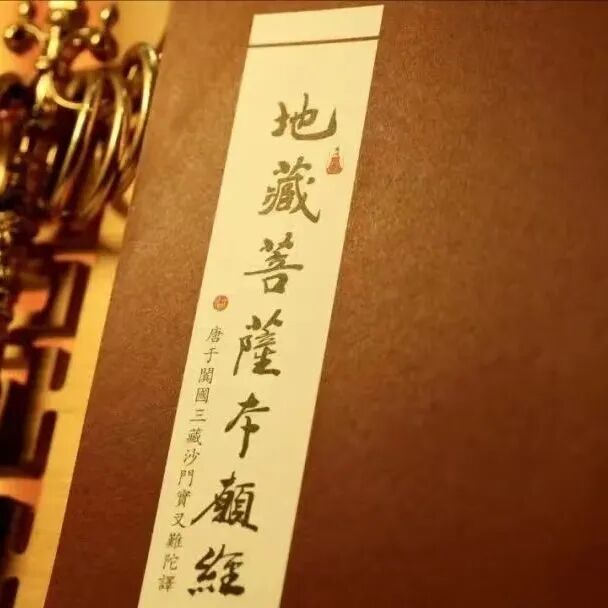 地藏菩薩本願經
唐于闐國三藏沙門實叉難陀譯